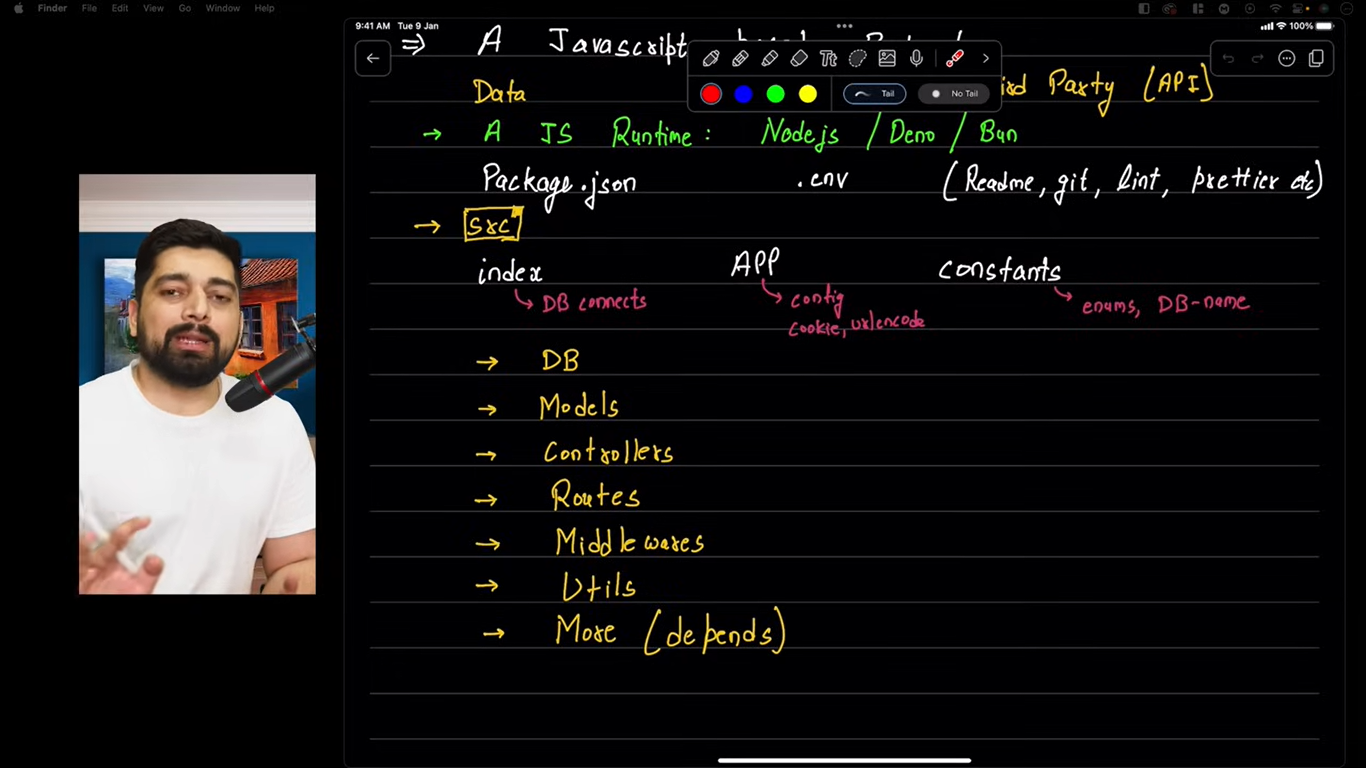 Finder File Edit View Go Window Help
9:41 AM Tue 9 Jan
100%
⇒ A Javascript
Tt
Tail
No Tail
Data Party (API)
→ A JS Runtime: Nodejs / Deno / Bun
Package.json .env (Readme, git, lint, prettier etc)
→ src
index APP constants
DB connects config enums, DB-name
cookie, urlencode
→ DB
→ Models
→ Controllers
→ Routes
→ Middlewares
→ Utils
→ More (depends)